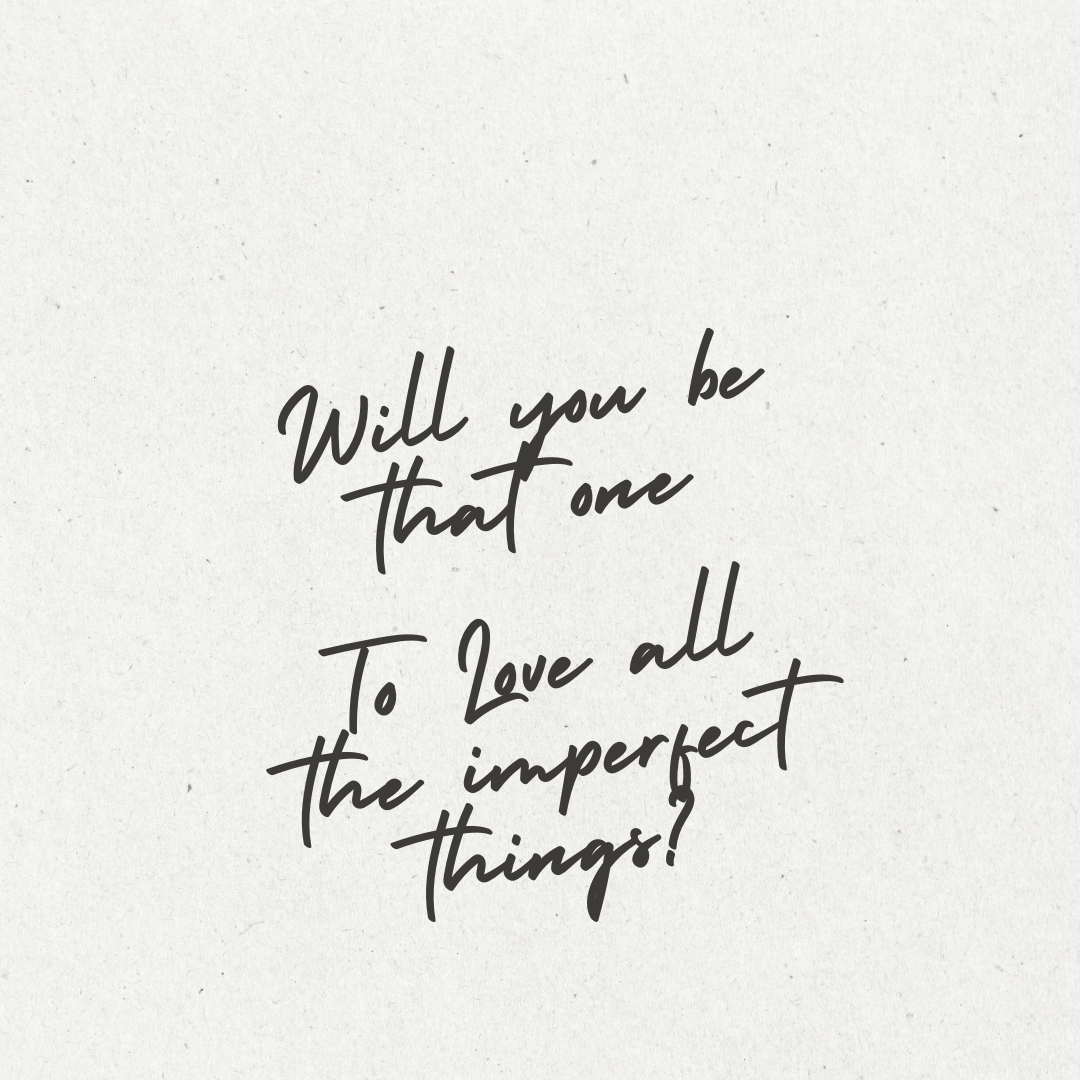 Will you be
that one
To Love all
the imperfect
things?